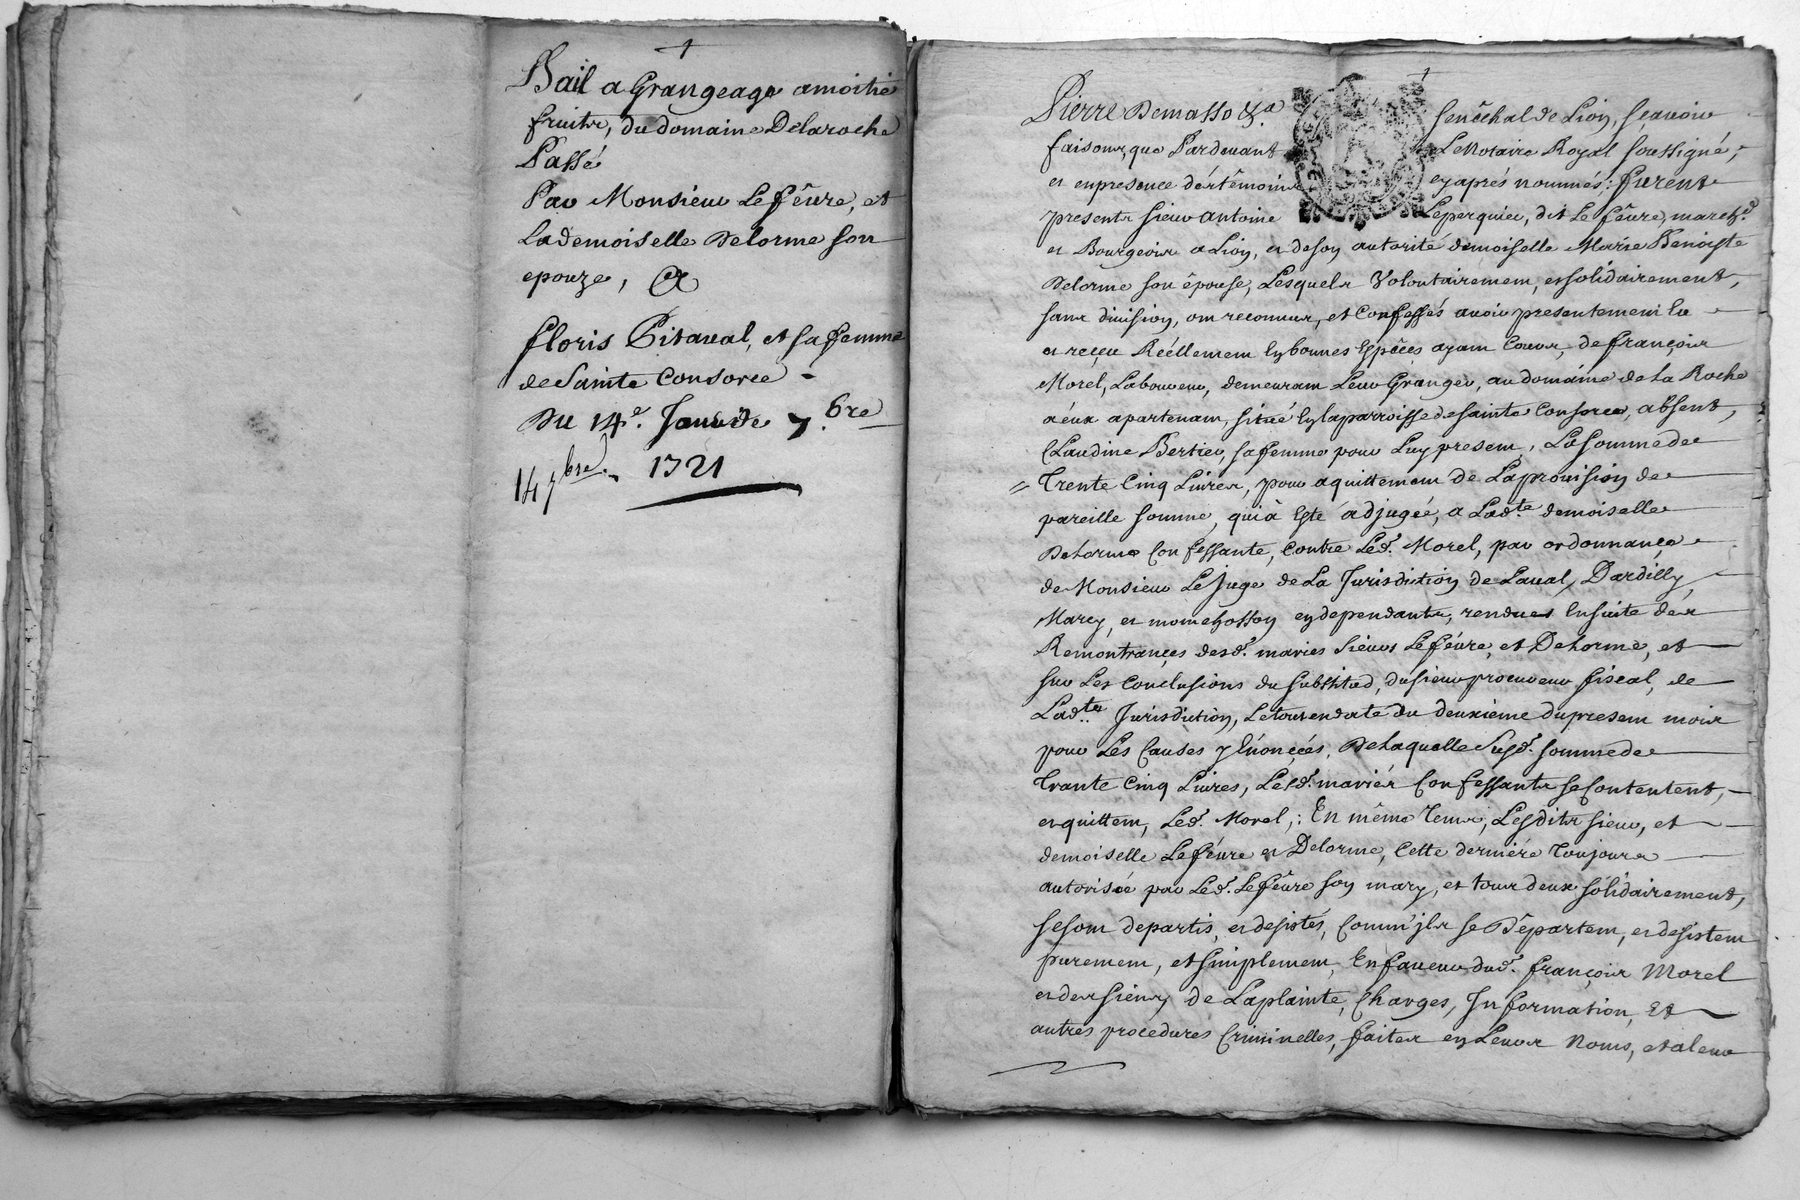 Bail a Grangeage amoitié
fruits, du domaine Delaroche
Passé
Par Monsieur Lefêvre, et
Lademoiselle Delorme son
epouze, &
floris Pitaval, et sa femme
de Sainte Consorce -
Du 14e. 7.bre
14 7bre. 1721
Pierre Demasso &a senêchal de Lion, sçavoir
faisons, que Pardevant Le Notaire Royal soussigné,
et enpresence dés têmoins cyaprés nommés: furent
presents sieur Antoine Leperquier, dit Le fêvre, march.d
et Bourgeois a Lion, et deson autorité demoiselle Marie Benoiste
Delorme son êpouse, Lesquels Volontairement, et solidairement,
sans division, ont reconnus, et Confessés avoir presentement eu
et reçeu Réellement En bonnes Espêces ayant Cours, de françois
Morel, Laboureur, demeurant Leur Granger, au domaine de La Roche
aéux apartenant, situé En laparroisse de sainte Consorce, absent,
Claudine Bertier, sa femme pour Luy present, La somme de
Trente Cinq Livres, pour aquittement de Laprovision de
pareille somme, qui à Esté adjugée, a Lad.te demoiselle
Delorme Confessante, Contre Led. Morel, par ordonnance
de Monsieur Le Juge de La Jurisdiction de Laval, Dardilly,
Marcy, et endependants, rendues Ensuite des
Remontrançes desd. mariés sieurs Lefévre, et Delorme, et
sur Les Conclusions du substitud, du sieur procureur fiscal, de
Lad.te Jurisdiction, Le tout endate du deuxième dupresent mois
pour Les Causes y Enonçées, De Laquelle susd. somme de
trante Cinq Livres, Lesd. mariés Confessants se Contentent,
et quittent, Led. Morel,: En même Tems, Lesdits sieur, et
demoiselle Lefévre et Delorme, Cette derniére Toujours
autorisée par Led. Lefévre son mary, et tous deux solidairement,
sesont departis, et desistés, Comm'jls se Départent, et desistent
purement, et simplement, En faveur dud. françois Morel
et des siens, de Laplainte, Charges, Information, Et
autres procedures Criminelles, faites en Leurs Noms, et aleur